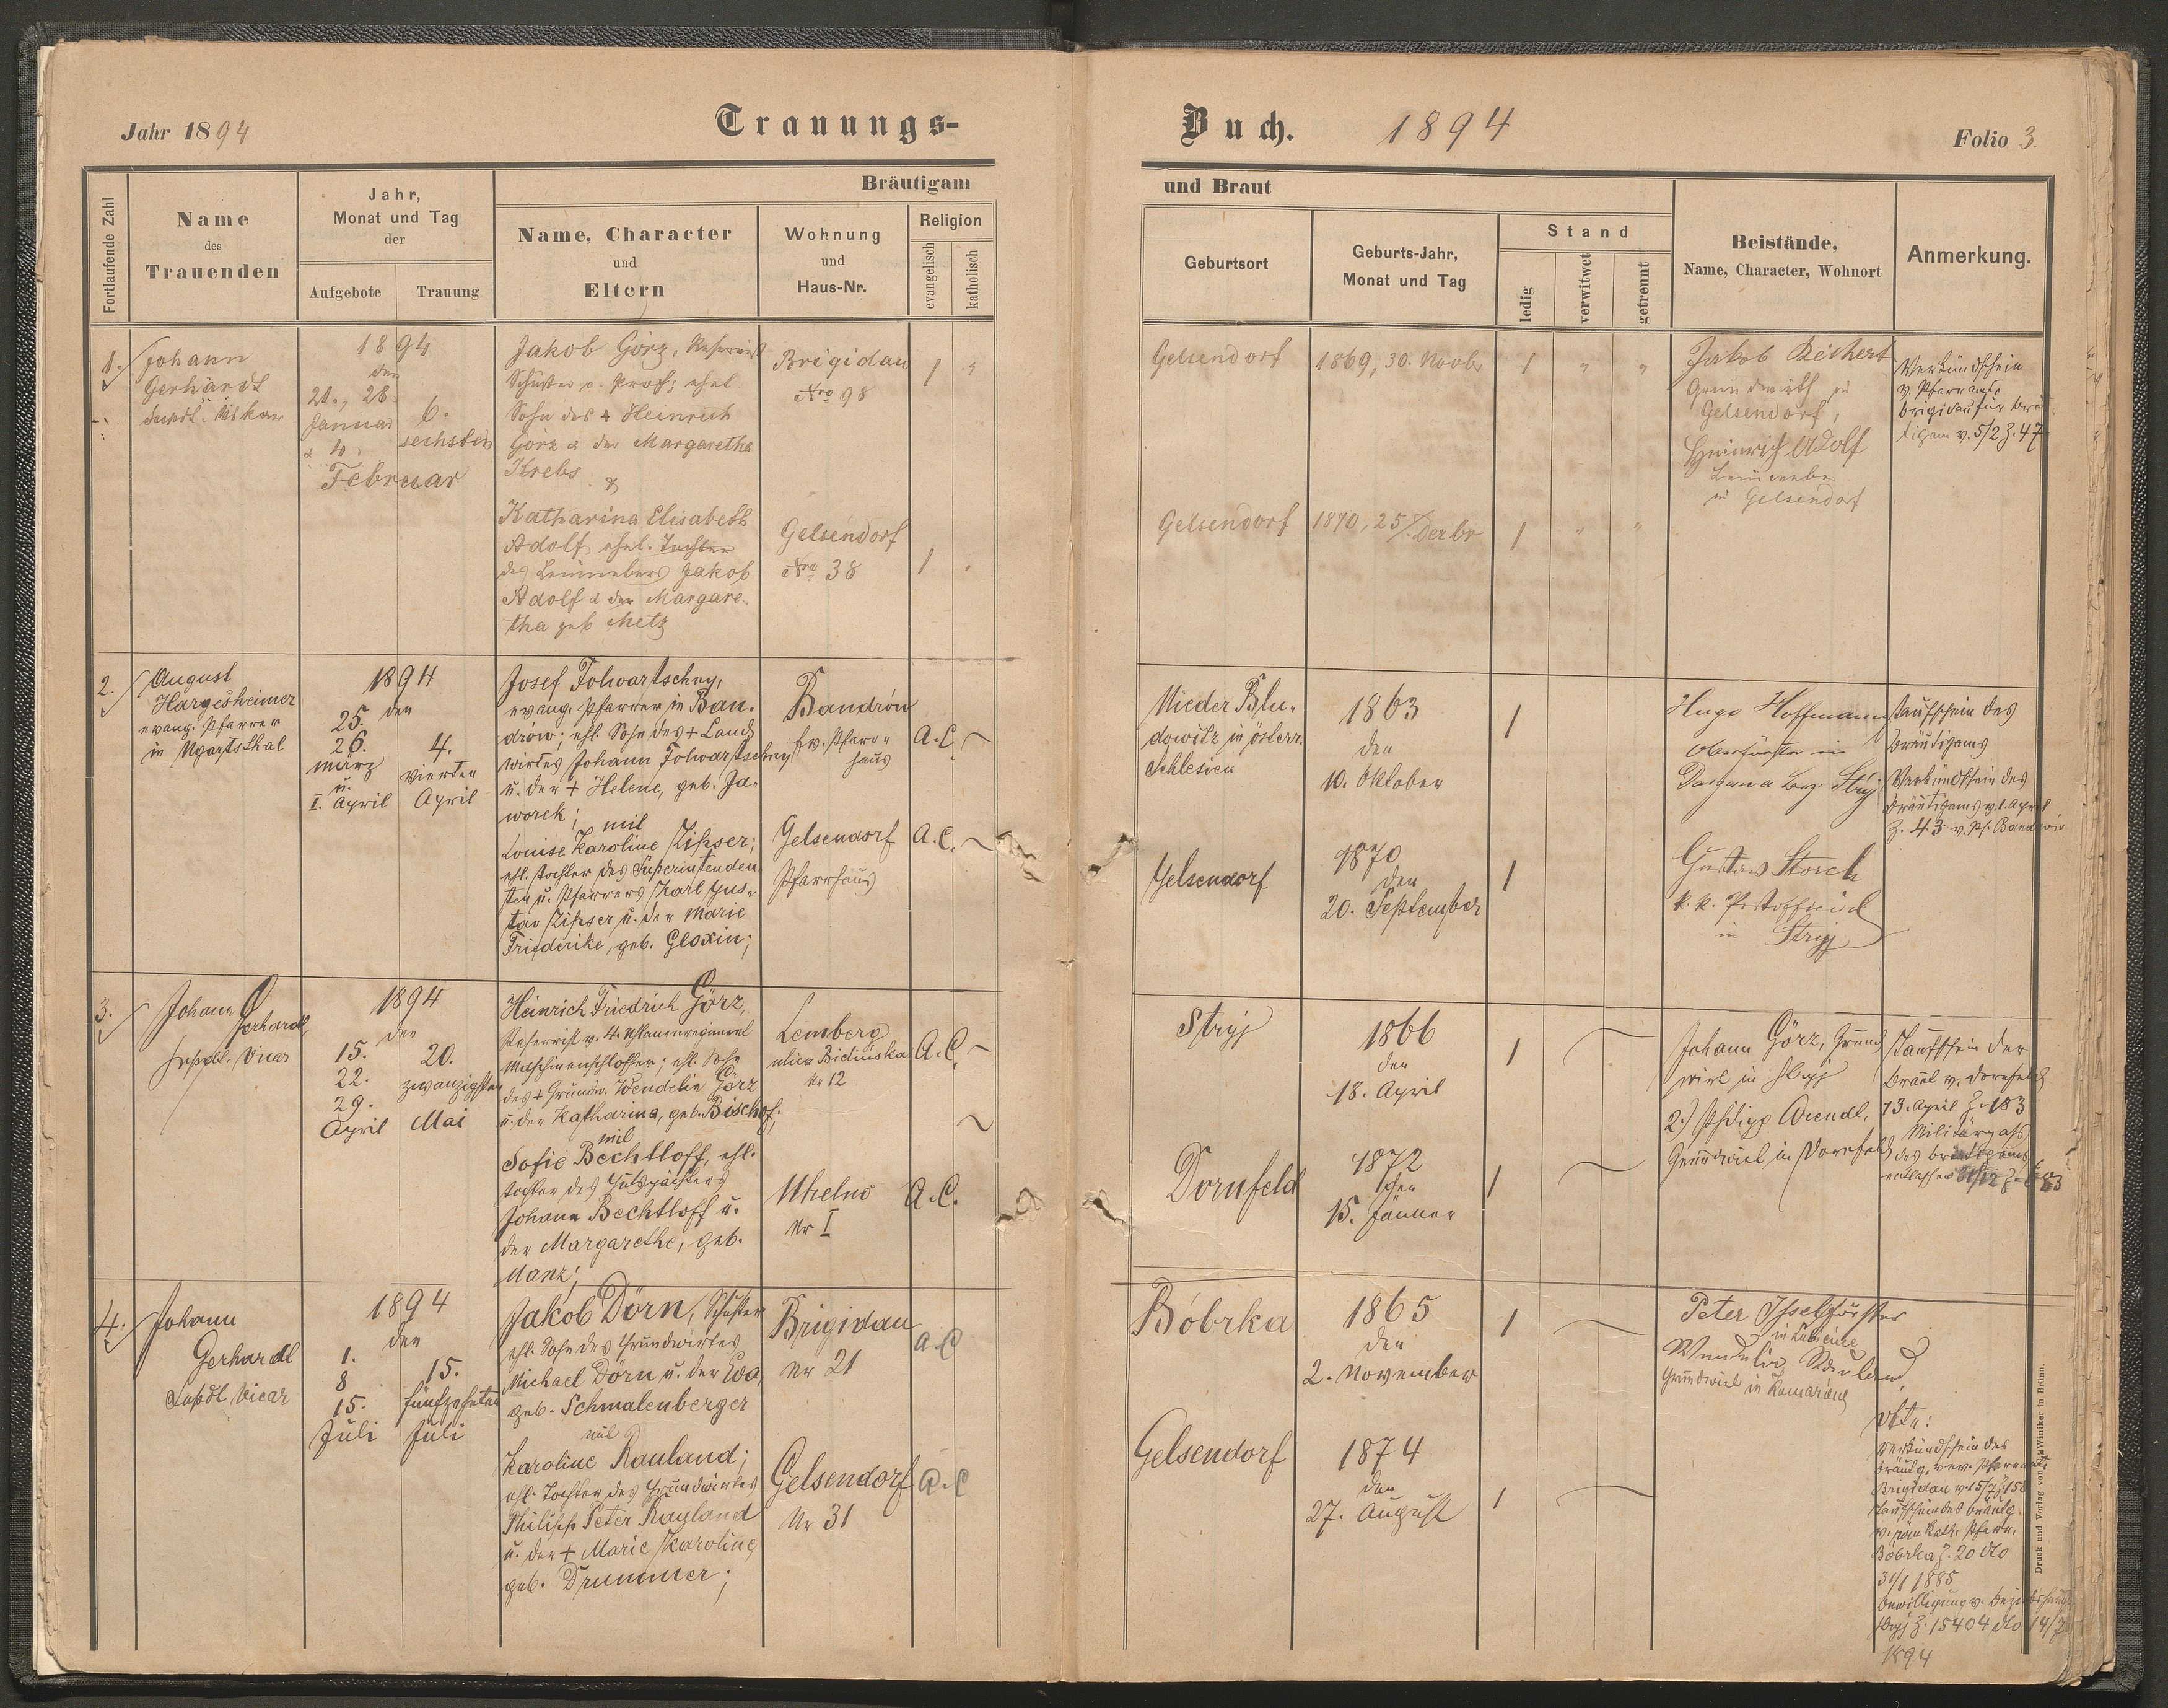 Jahr 1894
Trauungs-
Fortlaufende Zahl
Name
des
Trauenden
Jahr,
Monat und Tag
der
Aufgebote
Trauung
Bräutigam
Name, Character
und
Eltern
Wohnung
und
Haus-Nr.
Religion
evangelisch
katholisch
1.
Johann
Gerhardt
1894
den
21., 28.
Januar
Februar
6.
sechsten
Jakob Görz, Reservist
Schuster
Sohn des + Heinrich
Görz & der Margaretha
Krebs
&
Katharina Elisabeth
Adolf, ehel. Tochter
des Leinwebers Jakob
Adolf & der Margare
tha geb Metz
Brigidau
Nro 98
Gelsendorf
Nro 38
2.
August
Hargesheimer
evang. Pfarrer
in Ugartsthal
1894
den
25.
26.
März
u.
1. April
4.
vierten
April
Josef Folwartschny,
evang. Pfarrer in Ban-
drów; ehl. Sohn des + Land-
wirtes Johann Folwartschny
u. der + Helene, geb. Ja-
worek;
mit
Louise Karoline Zipser;
ehl. Tochter des Superintenden-
ten u. Pfarrers Karl Gus-
tav Zipser u. der Marie
Friederike, geb. Gloxin;
Bandrów
ev. Pfarr-
haus
A.C.
Gelsendorf
Pfarrhaus
A.C.
3.
Johann
Gerhardt,
Supdt. Vicar
1894
den
15.
22.
29.
April
20.
zwanzigsten
Mai
Heinrich Friedrich Görz,
Reservist v. 4. Uhlanenregiment
Maschinenschlosser; ehl. Sohn
des + Grundw. Wendelin Görz
u. der Katharina, geb. Bischof;
mit
Sofie Bechtloff, ehl.
Tochter des Gutspächters
Johann Bechtloff u.
der Margarethe, geb.
Manz;
Lemberg
ulica
Nr 12
A.C.
Uhelno
Nr I
A.C.
4.
Johann
Gerhardt
Supdt Vicar
1894
den
1.
8
15.
Juli
15.
fünfzehnten
Juli
Jakob Dörn, Schuster
ehl. Sohn des Grundwirtes
Michael Dörn u. der Eva,
geb. Schmalenberger
mit
Karoline Rauland;
ehl. Tochter des Grundwirtes
Philipp Peter Rauland
u. der + Marie Karoline
geb. Drummer;
Brigidau
Nr 21
A.C
Gelsendorf
Nr 31
A.C
Buch.
1894
Folio 3.
und Braut
Geburtsort
Geburts-Jahr,
Monat und Tag
Stand
ledig
verwitwet
getrennt
Beistände,
Name, Character, Wohnort
Anmerkung.
Gelsendorf
1869, 30. Novbr
Jakob Reichert
Grundwirth in
Gelsendorf,
Heinrich Adolf
Leinweber
in Gelsendorf
Verkündschein
v. Pfarramte
Brigidau für Bräu
tigam v. 5/2 Z. 47
Gelsendorf
1870, 25/Dezbr
Nieder Blu-
dowitz in österr.
Schlesien
1863
den
10. Oktober
Hugo Hoffmann
Oberförster in
Stryj
Taufschein des
Bräutigams
Verkündschein des
Bräutigams v. 1. April
Z. 43 v. Pf. Bandrów
Gelsendorf
1870
den
20. September
Gustav Storch
k. k. Postofficial
in Stryj
Stryj
1866
den
18. April
Johann Görz, Grund
wirt in Stryj
2.) Philipp Arendt,
Grundwirt in Dornfeld
Taufschein der
Braut v. Dornfeld
13. April Z. 183
Militärpass
des Bräutigams
Dornfeld
1872
den
15. Jänner
Bóbrka
1865
den
2. November
Peter Issel, Förster
Wendelin Rauland,
Grundwirt in
Gelsendorf
1874
den
27. August
Verkündschein des
Bräutg. v. ev. Pfarramt
Brigidau v. 15/7 Z. 150
Taufschein des Bräutg.
v. röm. kath. Pfarr.
Bóbrka Z. 20 dto
31/1 1885
Bewilligung v.
Stryj Z. 15404 dto 14/7
1894
Druck und Verlag von Winiker in Brünn.